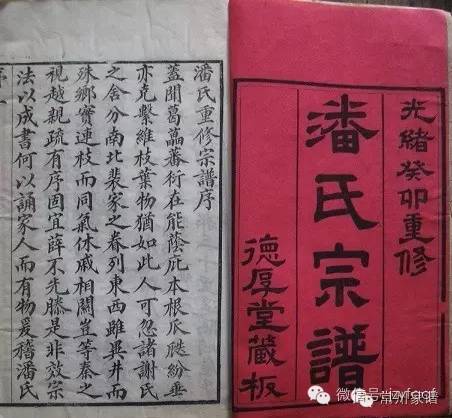 光緒癸卯重修
潘氏宗譜
德厚堂藏板
潘氏重修宗譜序
蓋聞葛藟蕃衍在能蔭庇本根瓜瓞紛垂
亦克繫維枝葉物猶如此人可忽諸謝氏
之舍分南北裴家之眷列東西雖異井而
殊鄉實連枝而同氣休戚相關豈等秦之
視越親疏有序固宜薛不先滕是非效宗
法以成書何以誦家人而有物爰稽潘氏
微信号:
常州家谱